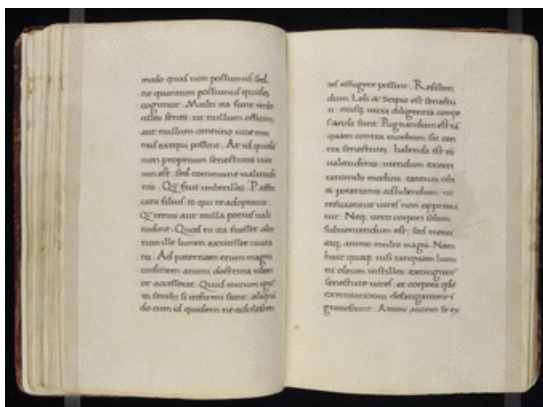 modo quod non possumus sed
ne quantum possumus quidem
cogimur. Multi ita sunt imbe
cilles senes: ut nullum officium
aut nullum omnino uite mu
nus exequi possint. At id quidẽ
non proprium senectutis uiti
um est: sed commune ualitudi
nis. Q̃ fuit imbecillus P. affri
cani filius is qui te adoptauit.
Q̃ tenui aut nulla potius uali
tudine. Quod ni ita fuisset alte
rum ille lumen extitisset ciuita
tis. Ad paternam enim magni
tudinem animi doctrina uberi
or accesserat. Quid mirum igit᷑
in senib; si infirmi sunt: aliquã
do cum id quidem ne adolescen
tes effugere possint. Resisten
dum Leli & Scipio est senectu
ti: eiusq; uitia diligentia compẽ
sanda sunt. Pugnandum est tã
quam contra morbum: sic con
tra senectutem: habenda est
ualitudinis: utendum exerci
tationib; modicis. tantum cibi
& potationis adhibendum: ut
reficiantur uires non opprimã
tur. Neq; uero corpori solum
subueniendum est: sed menti
atq; animo multo magis. Nam
quoq; nisi tanquam lumi
ni oleum instilles extinguũt᷑
senectute: et corpora qdẽ
exercitationum defatigatione ĩ
grauescunt. Animi autem se ex